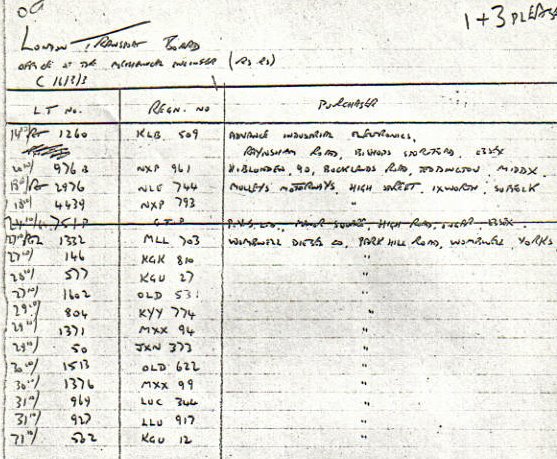 1+3 PLEASE
LONDON TRANSPORT BOARD
OFFICE OF THE MECHANICAL ENGINEER (RS RS)
C 16/3/3
LT No. REGN. No PURCHASER
1260 KLB 509 ADVANCE INDUSTRIAL ELECTRONICS,
RAYNSHAM ROAD, BISHOPS STORTFORD, ESSEX
976 NXP 961 H. BLUNDEN, 90, BUCKLANDS ROAD, TEDDINGTON MIDDX.
2976 NLE 744 MULLEYS MOTORWAYS, HIGH STREET, IXWORTH, SUFFOLK
4439 NXP 793 "
HIGH ROAD, ESSEX
1332 MLL 703 WOMBWELL DIESEL CO, PARK HILL ROAD, WOMBWELL, YORKS.
146 KGK 810 "
577 KGU 27 "
1602 OLD 531 "
804 KYY 774 "
1371 MXX 94 "
50 JXN 373 "
1513 OLD 622 "
1376 MXX 99 "
969 LUC 344 "
927 LLU 917 "
562 KGU 12 "